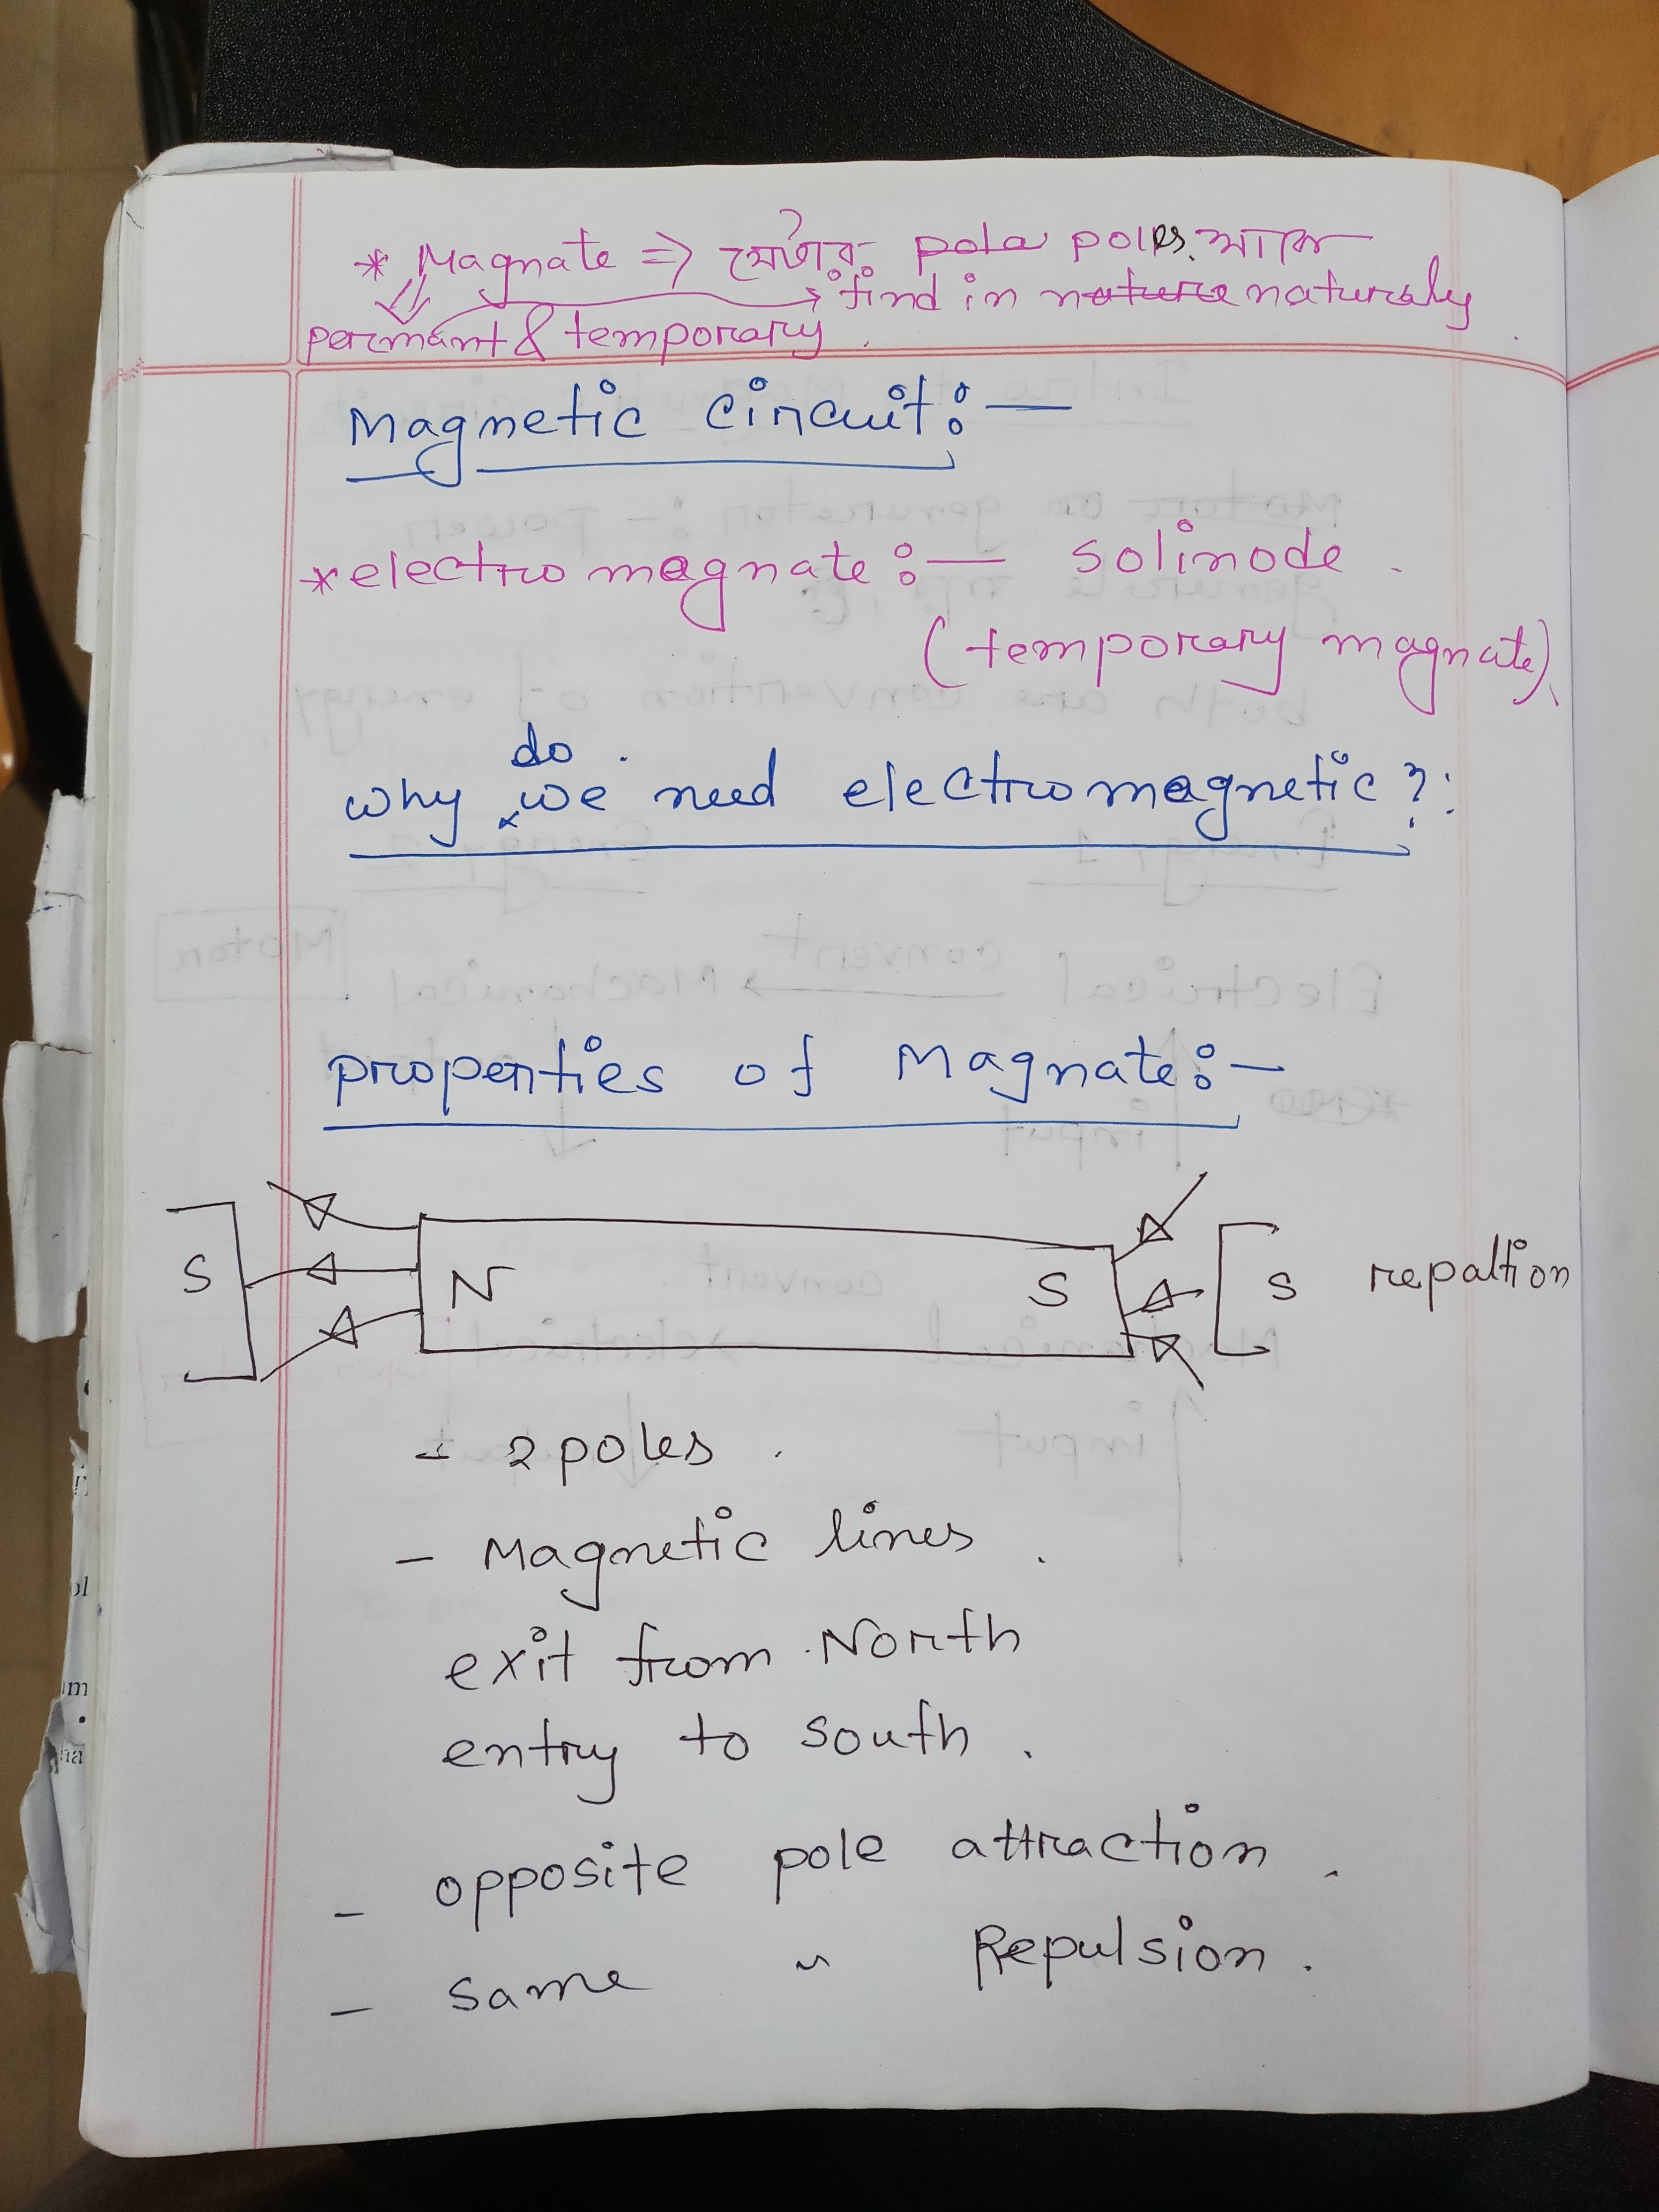 * Magnate ⇒ যেটার pola poles আছে
→ find in nature naturaly
permant & temporary.
Magnetic circuit :—
* electro magnate :— solinode.
(temporary magnate)
do
why we need electromagnetic?
properties of Magnate :—
S N S S repaltion
- 2 poles.
- Magnetic lines.
exit from North
entry to south.
- opposite pole attraction.
- same " Repulsion.